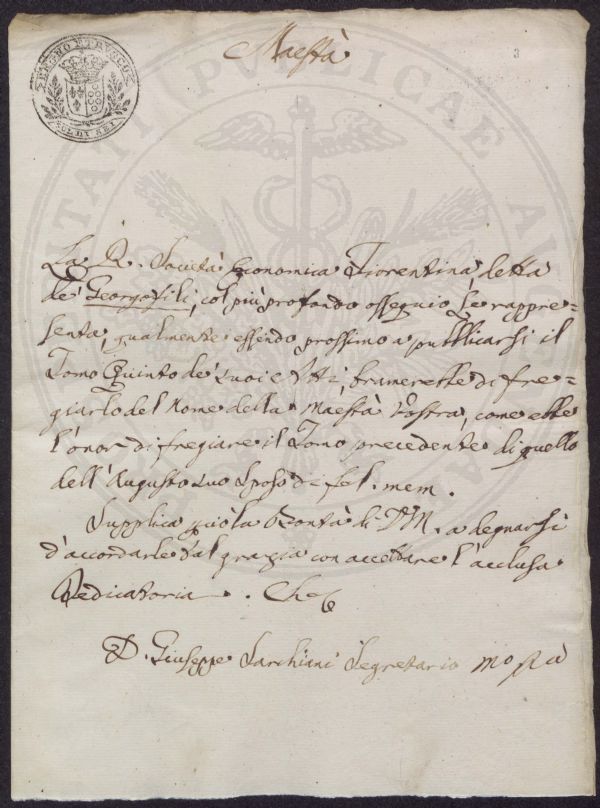 Maestà
3
REGNO ETRUSCO
La R. Società Economica Fiorentina detta
de' Georgofili, col più profondo ossequio Le rappre=
senta, qualmente essendo prossimo a pubblicarsi il
Tomo Quinto de' suoi Atti, bramerebbe di fre=
giarlo del Nome della Maestà Vostra, come ebbe
l'onor di fregiare il Tomo precedente di quello
dell'Augusto suo Sposo di fel. mem.
Supplica quì la Bontà di V. M. a degnarsi
d'accordarle tal grazia con accettare l'acclusa
Dedicatoria. Che
D. Giuseppe Sarchiani Segretario